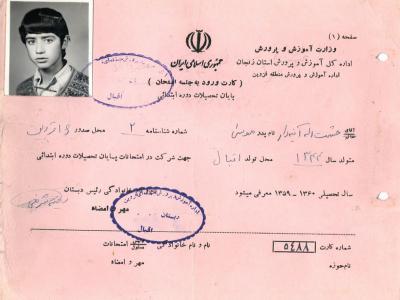 صفحه (۱)
وزارت آموزش و پرورش
اداره کل آموزش و پرورش استان زنجان
اداره آموزش و پرورش منطقه قزوین
جمهوری اسلامی ایران
( کارت ورود به جلسه امتحان )
پایان تحصیلات دوره ابتدائی
اقبال
آقای نام پدر شماره شناسنامه ۲ محل صدور
متولد سال ۱۳۴۲ محل تولد اقبال جهت شرکت در امتحانات پایان تحصیلات دوره ابتدائی
سال تحصیلی ۱۳۶۰ - ۱۳۵۹ معرفی میشود
نام خانوادگی رئیس دبستان
مهر و امضاء
دبستان
اقبال
شماره کارت ۵۴۸۸ نام و نام خانوادگی مسئول امتحانات
نام حوزه مهر و امضاء